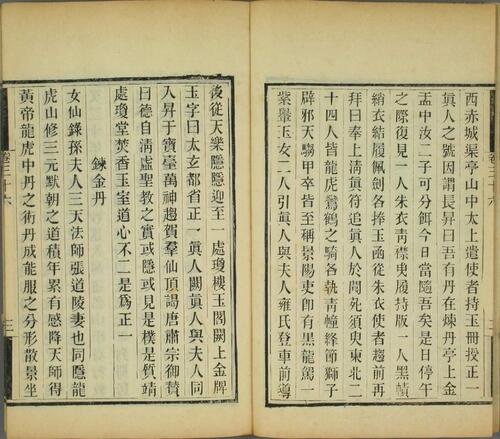 西赤城渠亭山中太上遣使者持玉冊授正一
眞人之號因謂長昇曰吾有丹在煉丹亭上金
盂中汝二子可分餌今日當隨吾矣是日停午
之際復見一人朱衣靑襟曳履持版一人黑幘
綃衣結履佩劍各捧玉函從朱衣使者趨前再
拜曰奉上淸眞符追眞人於閬苑須臾東北二
十四人皆龍虎鸞鶴之騎各執靑幢絳節獅子
辟邪天騶甲卒皆至稱景陽吏卽有黑龍駕一
紫轝玉女二人引眞人與夫人雍氏登車前導
後從天樂隱隱迎至一處瓊樓玉閣闕上金牌
玉字曰太玄都省正一眞人闕眞人與夫人同
入昇于寶臺萬神趨賀羣仙頂謁唐肅宗御贊
曰德自淸虛聖教之實或隱或見是樸是質靖
處瓊堂焚香玉室道心不二是爲正一
鍊金丹
女仙錄孫夫人三天法師張道陵妻也同隱龍
虎山修三元默朝之道積年累有感降天師得
黃帝龍虎中丹之術丹成能服之分形散景坐
卷三十六
三
卷三十六
三